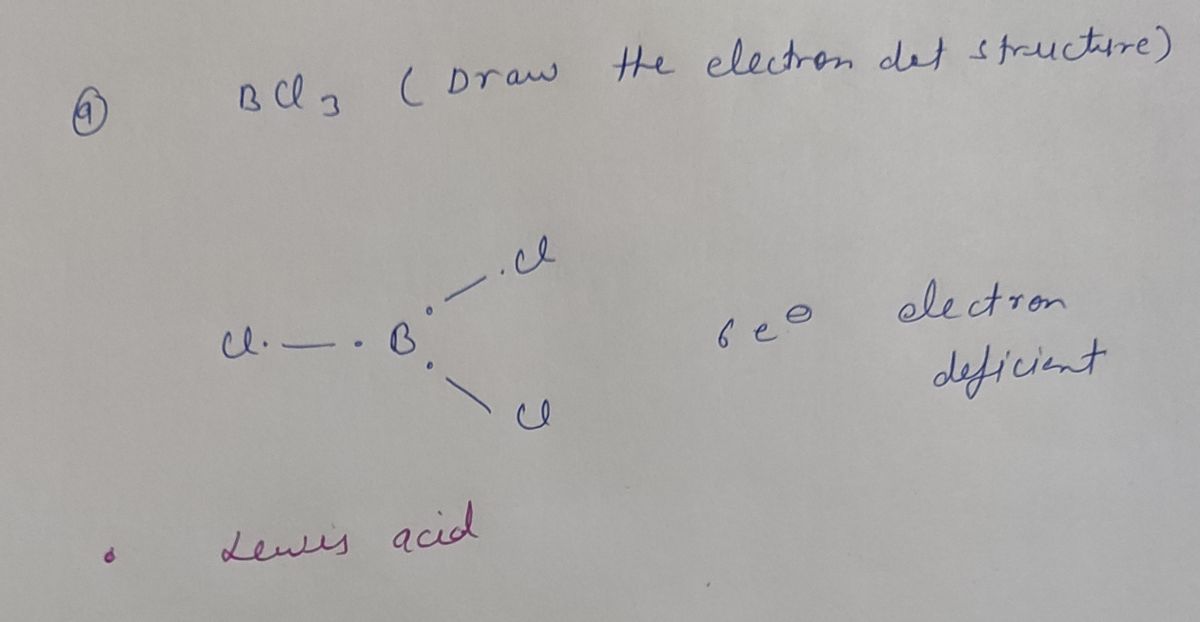 9 BCl3 (Draw the electron dot structure)
.Cl
Cl. — . B 6 e⊖ electron
deficient
Cl
• Lewis acid